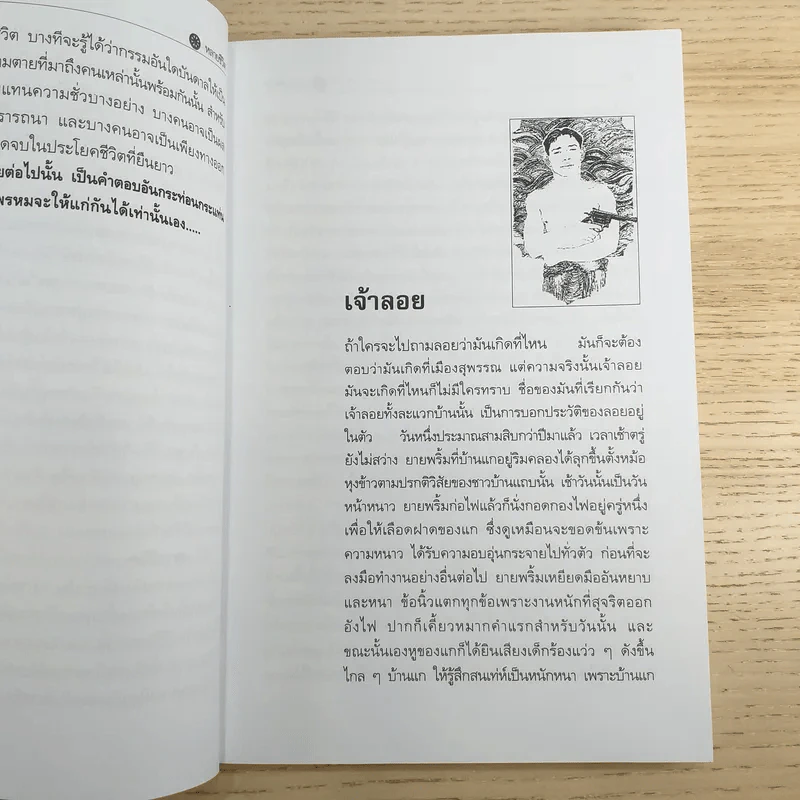 หลายชีวิต
วิต บางทีจะรู้ได้ว่ากรรมอันใดบันดาลให้เป็น
มตายที่มาถึงคนเหล่านั้นพร้อมกันนั้น สำหรับ
แทนความชั่วบางอย่าง บางคนอาจเป็นผล
รารถนา และบางคนอาจเป็นเพียงทางออก
ดจบในประโยคชีวิตที่ยืนยาว
ยต่อไปนั้น เป็นคำตอบอันกระท่อนกระแท่น
พรหมจะให้แก่กันได้เท่านั้นเอง.....
เจ้าลอย
ถ้าใครจะไปถามลอยว่ามันเกิดที่ไหน มันก็จะต้อง
ตอบว่ามันเกิดที่เมืองสุพรรณ แต่ความจริงนั้นเจ้าลอย
มันจะเกิดที่ไหนก็ไม่มีใครทราบ ชื่อของมันที่เรียกกันว่า
เจ้าลอยทั้งละแวกบ้านนั้น เป็นการบอกประวัติของลอยอยู่
ในตัว วันหนึ่งประมาณสามสิบกว่าปีมาแล้ว เวลาเช้าตรู่
ยังไม่สว่าง ยายพริ้มที่บ้านแกอยู่ริมคลองได้ลุกขึ้นตั้งหม้อ
หุงข้าวตามปรกติวิสัยของชาวบ้านแถบนั้น เช้าวันนั้นเป็นวัน
หน้าหนาว ยายพริ้มก่อไฟแล้วก็นั่งกอดกองไฟอยู่ครู่หนึ่ง
เพื่อให้เลือดฝาดของแก ซึ่งดูเหมือนจะขอดข้นเพราะ
ความหนาว ได้รับความอบอุ่นกระจายไปทั่วตัว ก่อนที่จะ
ลงมือทำงานอย่างอื่นต่อไป ยายพริ้มเหยียดมืออันหยาบ
และหนา ข้อนิ้วแตกทุกข้อเพราะงานหนักที่สุจริตออก
อังไฟ ปากก็เคี้ยวหมากคำแรกสำหรับวันนั้น และ
ขณะนั้นเองหูของแกก็ได้ยินเสียงเด็กร้องแว่ว ๆ ดังขึ้น
ไกล ๆ บ้านแก ให้รู้สึกสนเท่ห์เป็นหนักหนา เพราะบ้านแก